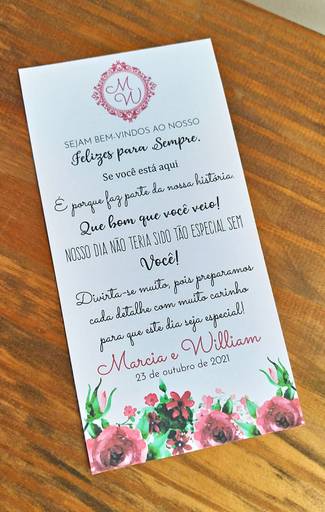 M
W
SEJAM BEM-VINDOS AO NOSSO
Felizes para Sempre.
Se você está aqui
É porque faz parte da nossa história.
Que bom que você veio!
NOSSO DIA NÃO TERIA SIDO TÃO ESPECIAL SEM
Você!
Divirta-se muito, pois preparamos
cada detalhe com muito carinho
para que este dia seja especial!
Marcia e William
23 de outubro de 2021